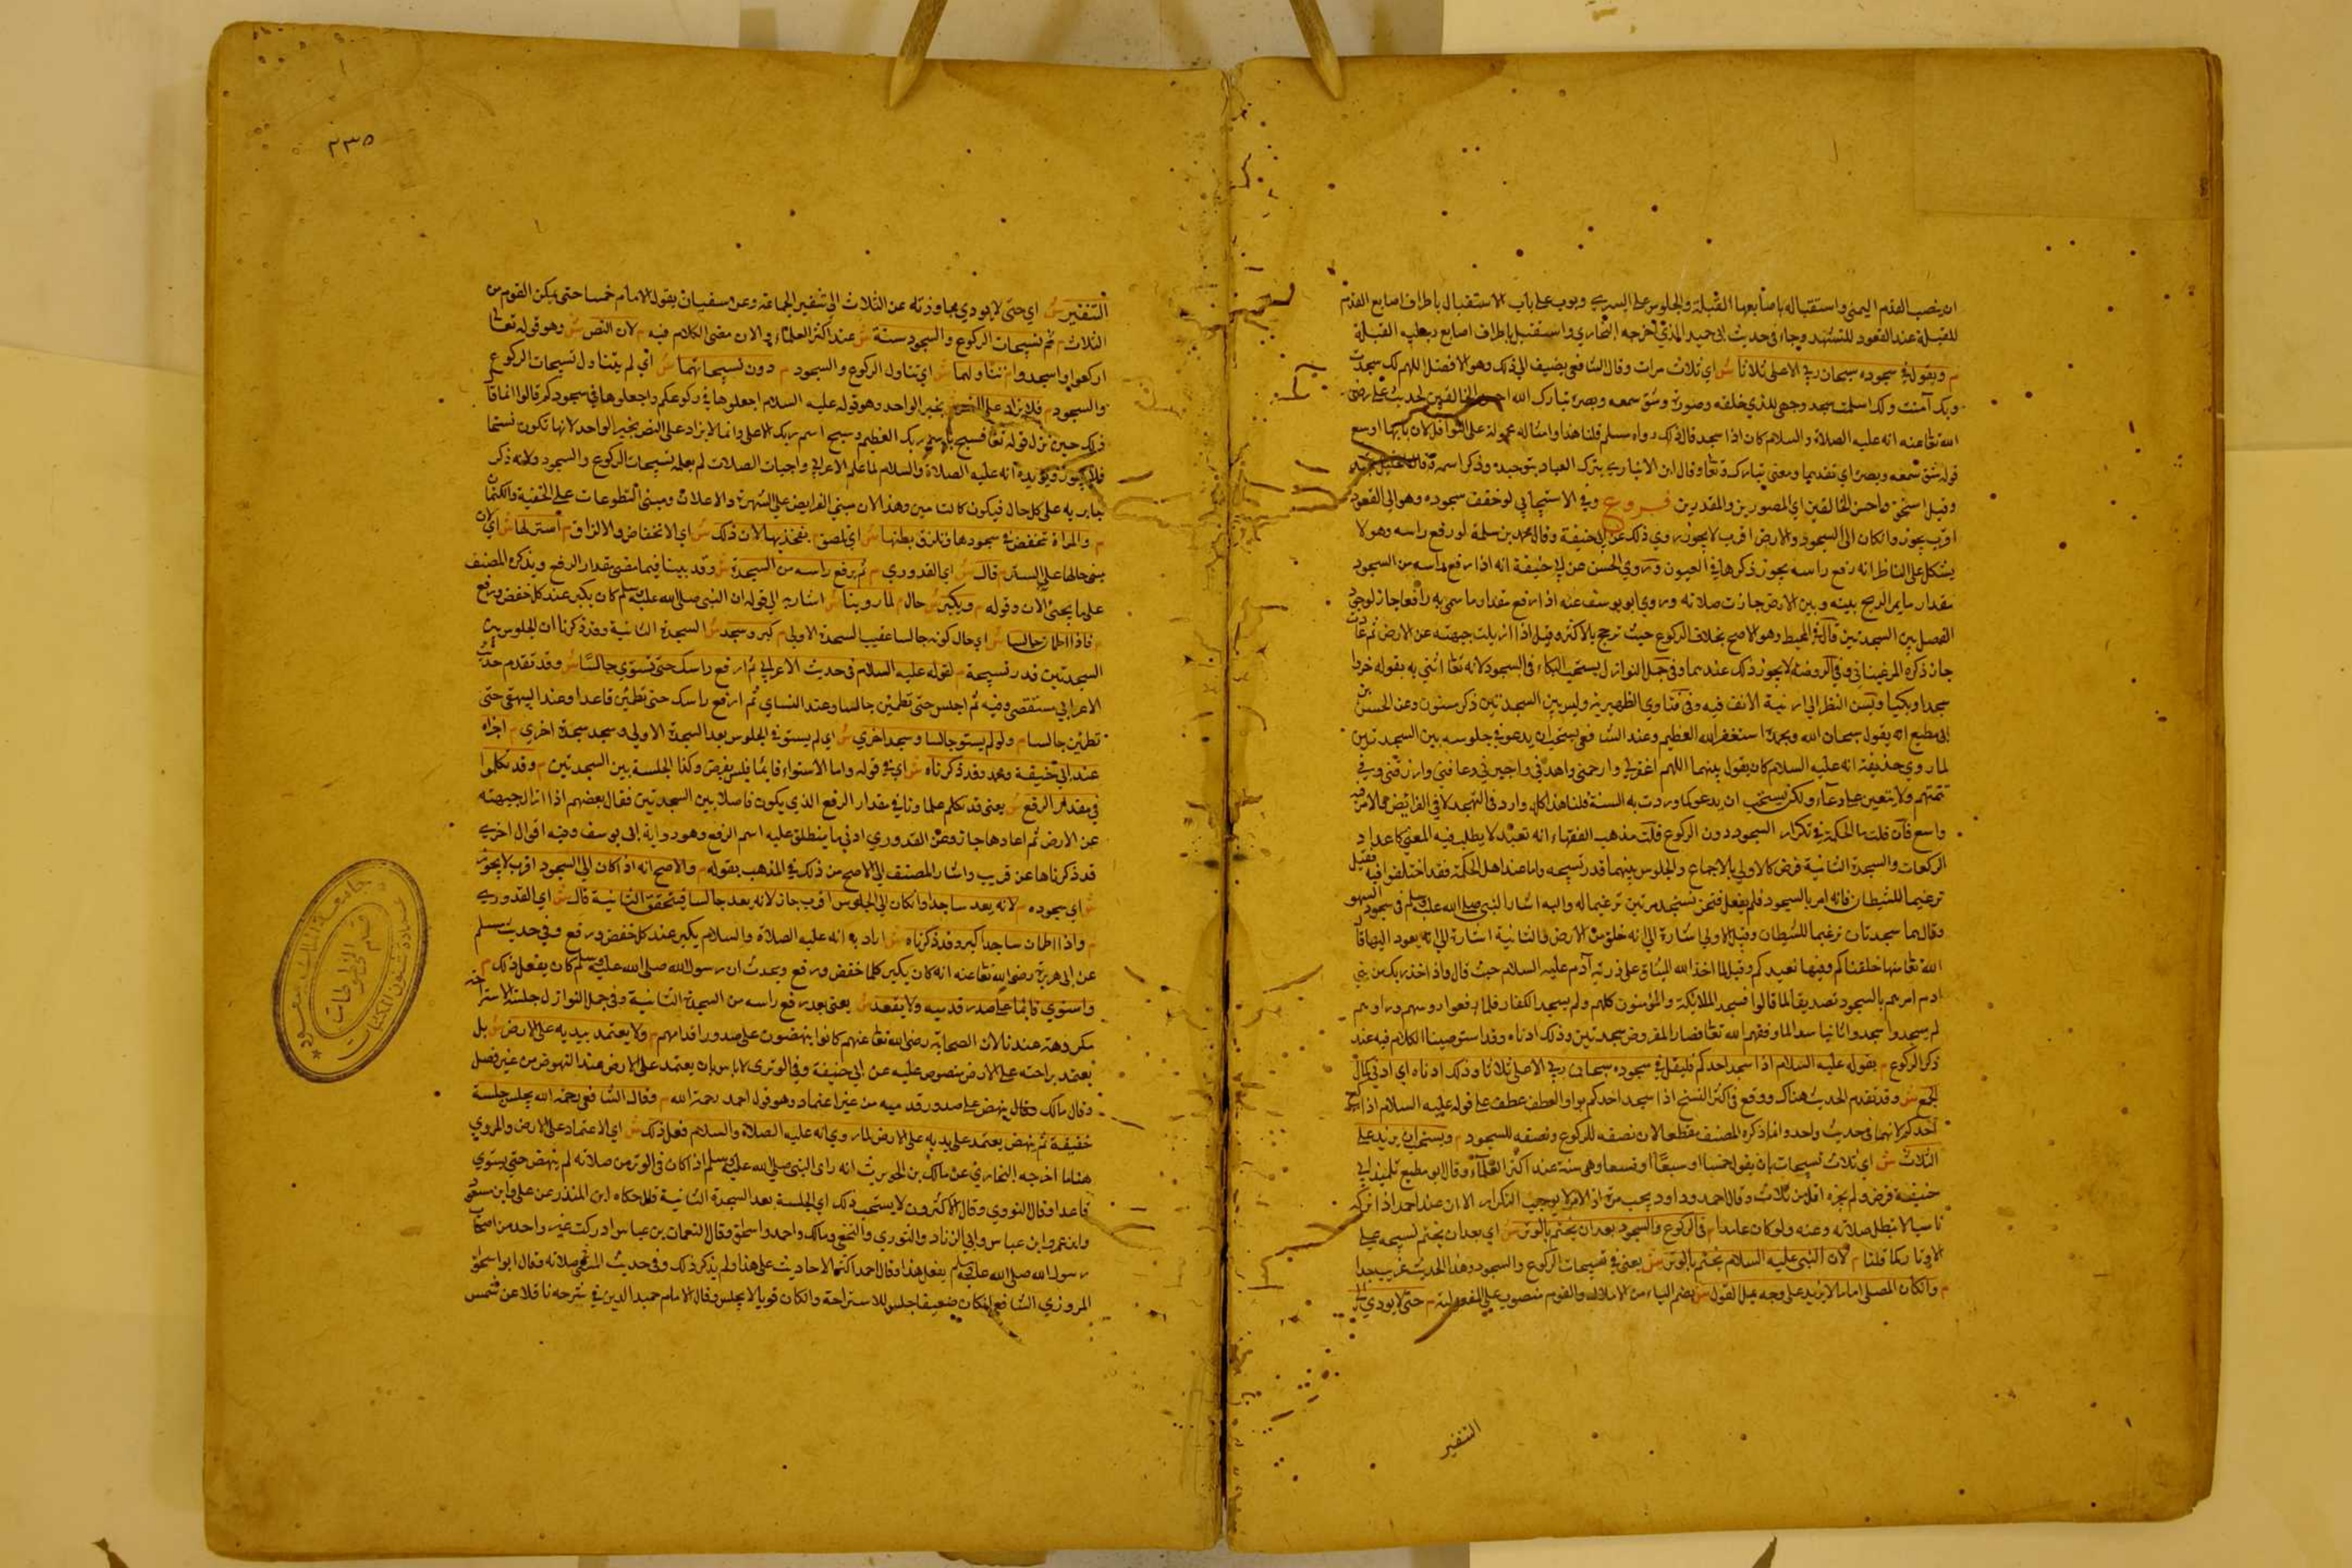 ان ينصب القدم اليمنى واستقباله باصابعها القبلة والجلوس على اليسرى وبوب على باب الاستقبال باطراف اصابع القدم
للقبلة عند القعود للتشهد وجاء في حديث ابي حميد الذي اخرجه البخاري واستقبل باطراف اصابع رجليه القبلة
م ويقول في سجوده سبحان ربي الاعلى ثلاثا ش اي ثلاث مرات وقال الشافعي يضيف الى ذلك وهو الافضل اللهم لك سجدت
وبك آمنت ولك اسلمت سجد وجهي للذي خلقه وصوره وشق سمعه وبصره تبارك الله احسن الخالقين لحديث على رضى
الله تعا عنه انه عليه الصلاة والسلام كان اذا سجد قال ذلك رواه مسلم قلنا هذا وامثاله محمولة على النوافل لان بابها اوسع
قوله شق سمعه وبصره اي تقديما ومعنى تبارك تعا وقال ابن الانباري يتبرك العباد بتوحيده وذكر اسمه
وقيل استحق واحسن الخالقين اي المصورين والمقدرين فروع وفي الاسبيجابي لو خفف سجوده وهو الى القعود
اقرب يجوز وان كان الى السجود والارض اقرب لا يجوز روي ذلك عن ابي حنيفة وقال محمد بن سلمة لو رفع راسه وهو لا
يشكل على الناظر انه رفع راسه يجوز ذكرها في العيون وروي الحسن عن ابي حنيفة انه اذا رفع راسه من السجود
مقدار ما يمر الريح بينه وبين الارض جازت صلاته وروي ابو يوسف عنه اذا رفع مقدار ما سمي به رافعا جاز لوجود
الفصل بين السجدتين قال في المحيط وهو الاصح بخلاف الركوع حيث ترجح بالاكثر وقيل اذا ازيلت جبهته عن الارض ثم عادت
جاز ذكره المرغيناني وفي الروضة لا يجوز ذلك عندهما وفي جمل النوازل يستحب البكاء في السجود لانه تعا اثنى به بقوله خروا
سجدا وبكيا ويسن النظر الى ارنبة الانف فيه وفي فتاوي الظهيرية وليس بين السجدتين ذكر مسنون وعن الحسن بن
ابي مطيع انه يقول سبحان الله وبحمده استغفر الله العظيم وعند الشافعي يستحب ان يدعو في جلوسه بين السجدتين
لما روي حذيفة انه عليه السلام كان يقول بينهما اللهم اغفر لي وارحمني واهدني واجبرني وعافني وارزقني وفي
تتمتهم ولا يتعين عليه دعاء ولكن يستحب ان يدعو كما وردت به السنة قلنا هذا كله وارد في التهجد لا في الفرائض
واسع فان قلت ما الحكمة في تكرار السجود دون الركوع قلت مذهب الفقهاء انه تعبد لا يطلب فيه المعنى كاعداد
الركعات والسجدة الثانية فرض كالاولى بالاجماع والجلوس بينهما قدر تسبيحه واما عند اهل الحكمة فقد اختلفوا فيه فقيل
ترغيما للشيطان فانه امر بالسجود فلم يفعل فنحن نسجد مرتين ترغيما له واليه اشار النبي صلى الله عليه وسلم في سجود السهو
وقال هما سجدتان ترغيما للشيطان وقيل الاولى اشارة الى انه خلق من الارض والثانية اشارة الى انه يعود اليها قال
الله تعا منها خلقناكم وفيها نعيدكم وقيل لما اخذ الله الميثاق على ذرية آدم عليه السلام حيث قال واذ اخذ ربك من بني
ادم امرهم بالسجود تصديقا لما قالوا فسجد الملائكة والمؤمنون كلهم ولم يسجد الكفار فلما رفعوا روسهم وراوهم
لم يسجدوا سجدوا ثانيا لما وفقهم الله تعا فصار المفروض سجدتين وذلك ادناه وقد استوصينا الكلام فيه عند
ذكر الركوع م بقوله عليه السلام اذا سجد احدكم فليقل في سجوده سبحان ربي الاعلى ثلاثا وذلك ادناه اي ادنى كمال
الجمع ش وقد تقدم الحديث هناك ووقع في اكثر النسخ اذا سجد احدكم بواو العطف عطف على قوله عليه السلام اذا ركع
احدكم لانهما في حديث واحد وانما ذكره المصنف مقطعا لان نصفه للركوع ونصفه للسجود م ويستحب ان يزيد على
الثلاث ش اي ثلاث تسبيحات بان يقول خمسا او سبعا او تسعا وهي سنة عند اكثر العلماء وقال ابو مطيع تلميذ ابي
حنيفة فرض ولم يجزه اقل من ثلاث وقال احمد وداود يجب مرة اذ الامر لا يوجب التكرار الا ان عند احمد اذا تركه
ناسيا لا تبطل صلاته وعنه ولو كان عامدا م في الركوع والسجود بعد ان يختم بالوتر ش اي بعد ان يختم تسبيحه على
الاوتار كما قلنا م لان النبي عليه السلام يختم بالوتر ش يعني في تسبيحات الركوع والسجود وهذا الحديث غريب جدا
م وان كان المصلي اماما لا يزيد على وجه يمل القوم ش بضم الياء من الاملال والقوم منصوب على المفعولية م حتى لا يودي الى
التنفير
٢٣٥
التنفير ش اي حتى لا يودي مجاوزته عن الثلاث الى تنفير الجماعة وعن سفيان يقول الامام خمسا حتى يمكن القوم من
الثلاث م ثم تسبيحات الركوع والسجود سنة ش عند اكثر العلماء والان مضى الكلام فيه م لان النص ش وهو قوله تعا
اركعوا واسجدوا م تناولهما ش اي تناول الركوع والسجود م دون تسبيحاتهما ش اي لم يتناول تسبيحات الركوع
والسجود م فلا يزاد على النص بخبر الواحد وهو قوله عليه السلام اجعلوها في ركوعكم واجعلوها في سجودكم قالوا انما قال
ذلك حين نزل قوله تعا فسبح باسم ربك العظيم وسبح اسم ربك الاعلى وانما لا يزاد على النص بخبر الواحد لانها تكون نسخا
فلا يجوز ويؤيده انه عليه الصلاة والسلام لما علم الاعرابي واجبات الصلات لم يعلمه تسبيحات الركوع والسجود ولانه ذكر
جاريه على كل حال فيكون كالتامين وهذا لان مبنى الفرايض على الشهرة والاعلان ومبنى التطوعات على الخفية والكتمان
م والمراة تنخفض في سجودها وتلزق بطنها ش اي تلصق بفخذيها لان ذلك ش اي الانخفاض والالزاق م استر لها ش اي لان
مبنى حالها على الستر م قال ش اي القدوري م ثم يرفع راسه من السجدة ش وقد بينا فيما مضى مقدار الرفع ويذكره المصنف
على ما يجئ الان وقوله م ويكبر ش حال م لما روينا ش اشار به الى قوله ان النبي صلى الله عليه وسلم كان يكبر عند كل خفض ورفع
م فاذا اطمان جالسا ش اي حال كونه جالسا عقيب السجدة الاولى م كبر وسجد ش السجدة الثانية وقد ذكرنا ان الجلوس بين
السجدتين قدر تسبيحة م لقوله عليه السلام في حديث الاعرابي ثم ارفع راسك حتى تستوي جالسا ش وقد تقدم حديث
الاعرابي مستقصى وفيه ثم اجلس حتى تطمئن جالسا وعند النساي ثم ارفع راسك حتى تطمئن قاعدا وعند البيهقي حتى
تطمئن جالسا م ولو لم يستو جالسا وسجد اخرى ش اي لم يستو في الجلوس بعد السجدة الاولى وسجد سجدة اخرى م اجزاه
عند ابي حنيفة ومحمد وقد ذكرناه ش اي في قوله واما الاستواء قائما فليس بفرض وكذا الجلسة بين السجدتين م وقد تكلموا
في مقدار الرفع ش يعني قد تكلم علماونا في مقدار الرفع الذي يكون فاصلا بين السجدتين فقال بعضهم اذا ازال جبهته
عن الارض ثم اعادها جاز وعن القدوري ادنى ما ينطلق عليه اسم الرفع وهو رواية ابي يوسف وفيه اقوال اخرى
قد ذكرناها عن قريب واشار المصنف الى الاصح من ذلك في المذهب بقوله م والاصح انه اذا كان الى السجود اقرب لا يجوز
ش اي سجوده م لانه يعد ساجدا وان كان الى الجلوس اقرب جاز لانه يعد جالسا فتتحقق الثانية قال ش اي القدوري
م واذا اطمان ساجدا كبر وقد ذكرناه ش اراد به انه عليه الصلاة والسلام يكبر عند كل خفض ورفع وفي حديث مسلم
عن ابي هريرة رضي الله تعا عنه انه كان يكبر كلما خفض ورفع ويحدث ان رسول الله صلى الله عليه وسلم كان يفعل ذلك م
واستوى قائما على صدر قدميه ولا يقعد ش يعني بعد رفع راسه من السجدة الثانية وفي جمل النوازل جلسة الاستراحة
مكروهة عندنا لان الصحابة رضى الله تعا عنهم كانوا ينهضون على صدور اقدامهم م ولا يعتمد بيديه على الارض ش بل
يعتمد براحته على الارض منصوص عليه عن ابي حنيفة وفي الوتري لا باس بان يعتمد على الارض عند النهوض من غير فصل
وقال مالك ينهض على صدور قدميه من غير اعتماد وهو قول احمد رحمه الله م وقال الشافعي رحمه الله يجلس جلسة
خفيفة ثم ينهض يعتمد على يديه على الارض لما روي انه عليه الصلاة والسلام فعل ذلك ش اي الاعتماد على الارض والمروي
هنا ما اخرجه البخاري عن مالك بن الحويرث انه راى النبي صلى الله عليه وسلم اذا كان في الوتر من صلاته لم ينهض حتى يستوي
قاعدا وقال النووي وقال الاكثرون لا يستحب ذلك اي الجلسة بعد السجدة الثانية حكاه ابن المنذر عن علي وابن مسعود
وابن عمر وابن عباس وابي الزناد والثوري والنخعي ومالك واحمد واسحاق وقال النعمان بن عياش ادركت غير واحد من اصحاب
رسول الله صلى الله عليه وسلم يفعل هذا وقال احمد اكثر الاحاديث على هذا ولم يذكر ذلك وفي حديث صلاته وقال ابو اسحاق
المروزي الشافعي ان كان ضعيفا جلس للاستراحة وان كان قويا لا يجلس وقال الامام حميد الدين في شرحه ناقلا عن شمس
جامعة الملك سعود
عمادة شئون المكتبات
قسم المخطوطات